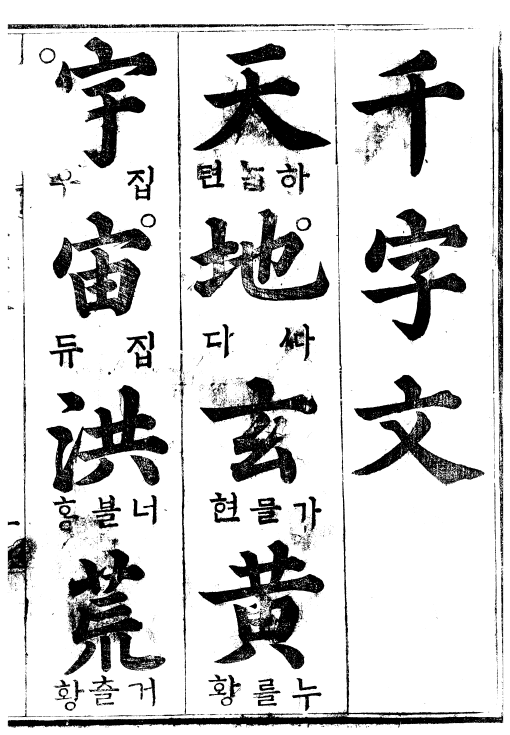 千字文
天
하늘텬
地
ᄯᅡ다
玄
가믈현
黃
누를황
宇
집우
宙
집듀
洪
너블홍
荒
거츨황